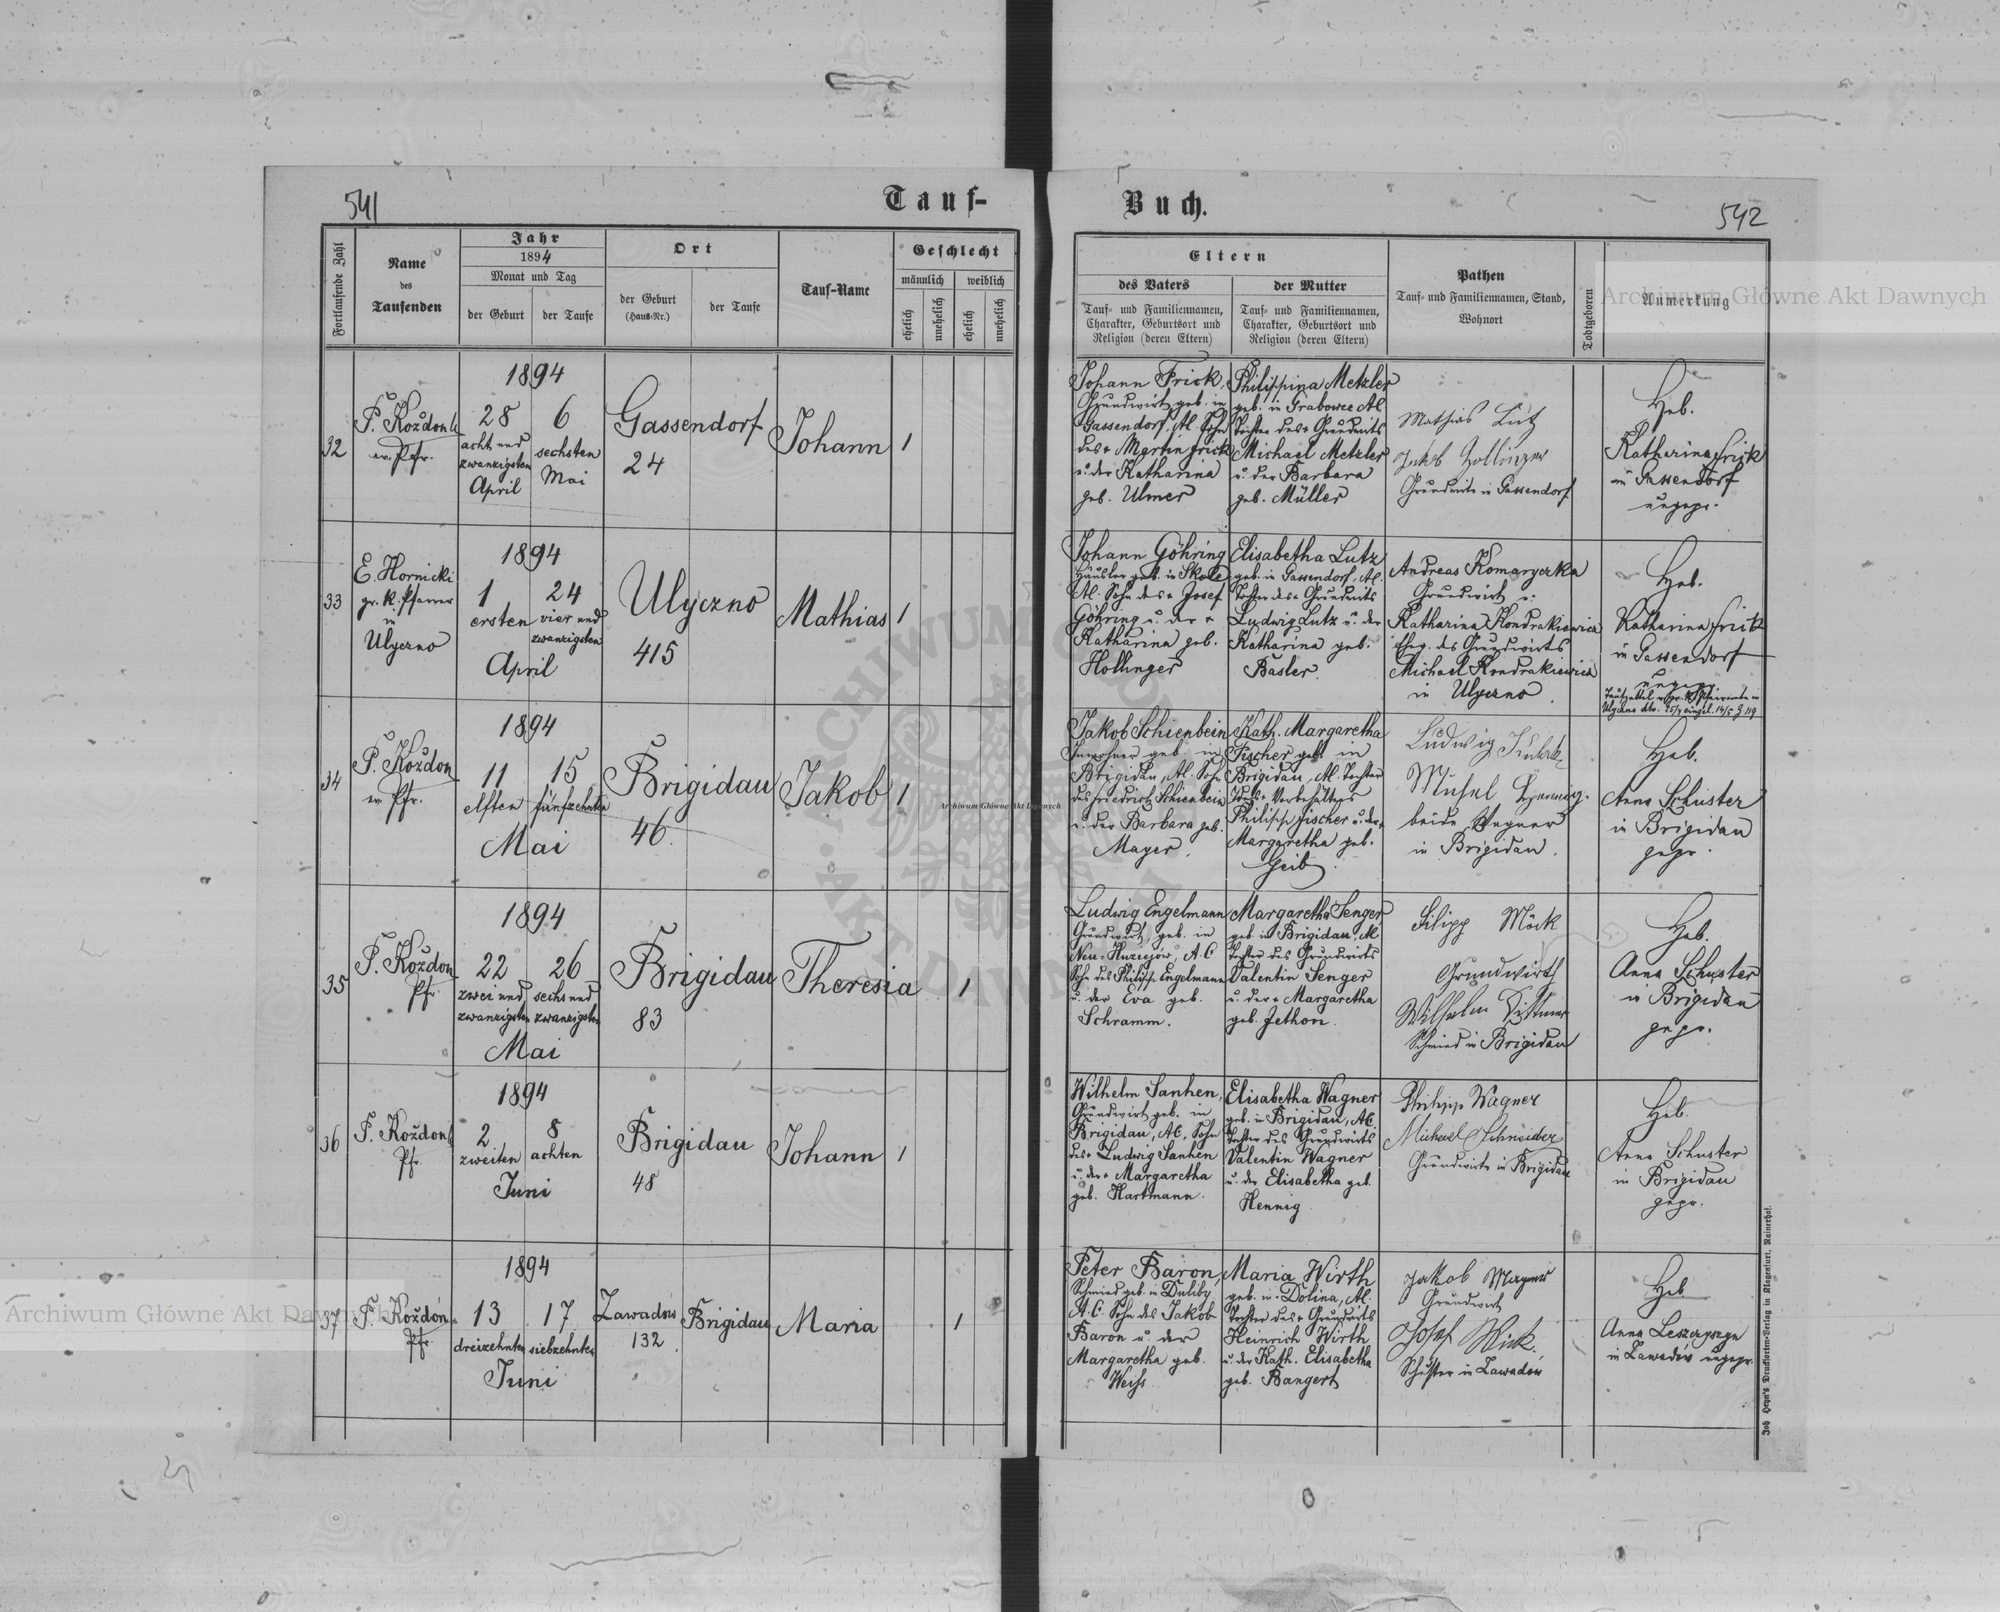 541
Tauf-
Fortlaufende Zahl
Name
des
Taufenden
Jahr
1894
Monat und Tag
der Geburt
der Taufe
Ort
der Geburt
(Haus-Nr.)
der Taufe
Tauf-Name
Geschlecht
männlich
weiblich
ehelich
unehelich
ehelich
unehelich
32
F. Koždoň
ev. Pfr.
1894
28
acht und
zwanzigsten
April
6
sechsten
Mai
Gassendorf
24
Johann
1
33
E. Hornicki
gr. k. Pfarrer
in
Ulyczno
1894
1
ersten
24
vier und
zwanzigsten
April
Ulyczno
415
Mathias
1
34
F. Koždoň
ev. Pfr.
1894
11
elften
15
fünfzehnten
Mai
Brigidau
46
Jakob
1
35
F. Koždoň
Pfr.
1894
22
zwei und
zwanzigsten
26
sechs und
zwanzigsten
Mai
Brigidau
83
Theresia
1
36
F. Koždoň
Pfr.
1894
2
zweiten
8
achten
Juni
Brigidau
48
Johann
1
37
F. Koždoň
Pfr.
1894
13
dreizehnten
17
siebzehnten
Juni
Zawadów
132
Brigidau
Maria
1
Buch.
542
Eltern
des Vaters
Tauf- und Familiennamen,
Charakter, Geburtsort und
Religion (deren Eltern)
der Mutter
Tauf- und Familiennamen,
Charakter, Geburtsort und
Religion (deren Eltern)
Pathen
Tauf- und Familiennamen, Stand,
Wohnort
Todtgeboren
Anmerkung
Johann Frick,
Grundwirt geb. in
Gassendorf, AC. Sohn
des + Martin Frick
u. der Katharina
geb. Ulmer
Philippina Metzler
geb. in Grabowce AC.
Tochter des + Grundwirts
Michael Metzler
u. der Barbara
geb. Müller
Mathias Lutz
Jakob Hollinger
Grundwirte in Gassendorf
Heb.
Katharina Frick
in Gassendorf
ungepr.
Johann Göhring
Häusler geb. in Skole
AC. Sohn des + Josef
Göhring u. der +
Katharina geb.
Hollinger
Elisabetha Lutz
geb. in Gassendorf, AC.
Tochter des + Grundwirts
Ludwig Lutz u. der
Katharina geb.
Basler.
Andreas Komaryczka
Grundwirt u.
Katharina Kondrakiewicz
Eheg. des Grundwirts
Michael Kondrakiewicz
in Ulyczno.
Heb.
Katharina Frick
in Gassendorf
ungepr.
Jakob Schienbein
Inwohner geb. in
Brigidau, AC. Sohn
des Friedrich Schienbein
u. der Barbara geb.
Mayer.
Kath. Margaretha
Fischer geb. in
Brigidau, AC. Tochter
des + Vorbehälters
Philipp Fischer u. der +
Margaretha geb.
Geib.
Ludwig
Michel Hennig.
beide Wagner
in Brigidau.
Heb.
Anna Schuster
in Brigidau
gepr.
Ludwig Engelmann
Grundwirt, geb. in
Neu-Huziejów, A.C.
Sohn des Philipp Engelmann
u. der Eva geb.
Schramm.
Margaretha Senger
geb. in Brigidau, AC
Tochter des Grundwirts
Valentin Senger
u. der + Margaretha
geb. Jethon.
Filipp Möck
Grundwirth
Wilhelm Dittmer
Schmied in Brigidau
Heb.
Anna Schuster
in Brigidau
gepr.
Wilhelm Sanhen,
Grundwirt geb. in
Brigidau, AC, Sohn
des + Ludwig Sanhen
u. der + Margaretha
geb. Hartmann.
Elisabetha Wagner
geb. in Brigidau, AC.
Tochter des Grundwirts
Valentin Wagner
u. der Elisabetha geb.
Hennig
Philipp Wagner
Michael Schneider
Grundwirte in Brigidau
Heb.
Anna Schuster
in Brigidau
gepr.
Peter Baron,
Schmied geb. in Duliby
A.C. Sohn des Jakob
Baron u. der
Margaretha geb.
Weiss
Maria Wirth
geb. in Dolina, AC.
Tochter des + Grundwirts
Heinrich Wirth
u. der Kath. Elisabetha
geb. Bangert
Jakob Mayer
Grundwirt
Josef Wick.
Schuster in Zawadów
Heb
Anna Leszczyszyn
in Zawadów ungepr.
Joh. Heyn's Drucksorten-Verlag in Klagenfurt, Rainerhof.
Archiwum Główne Akt Dawnych
Archiwum Główne Akt Dawnych
Archiwum Główne Akt Dawnych